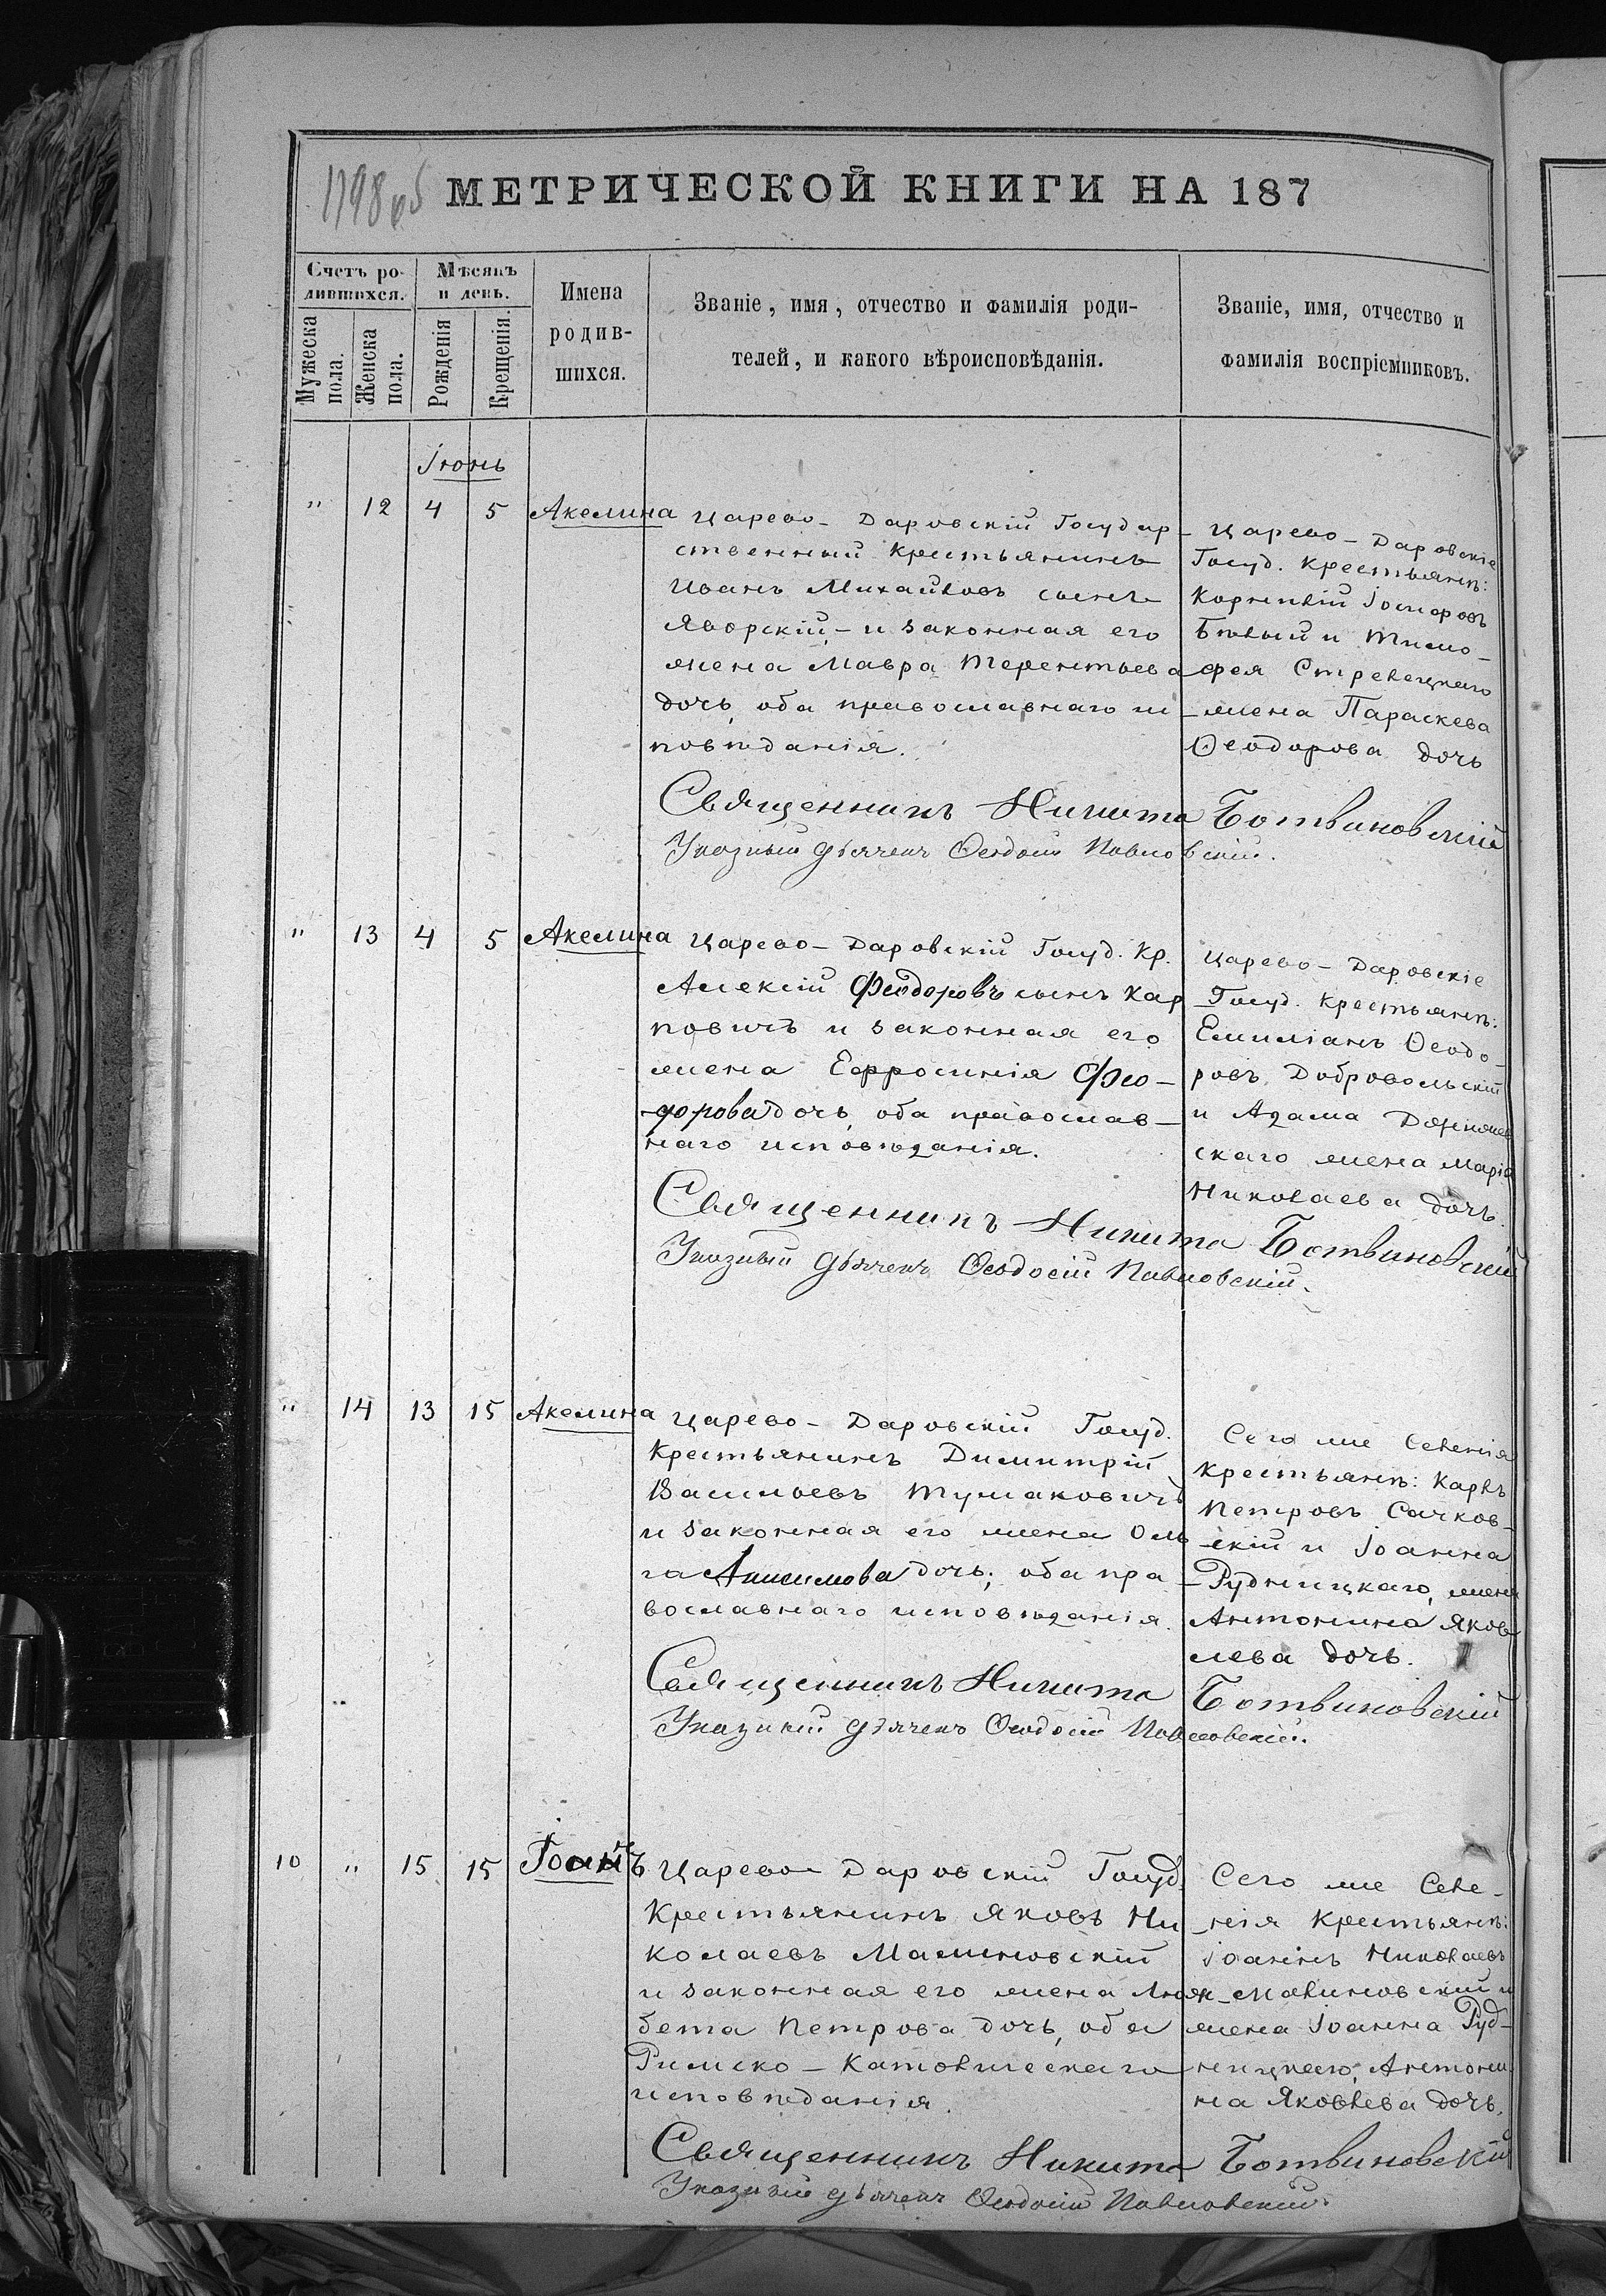 1198 об
МЕТРИЧЕСКОЙ КНИГИ НА 187
Счетъ ро-
дившихся.
Мужеска пола.
Женска пола.
Мѣсяцъ
и день.
Рожденія
Крещенія.
Имена
родив-
шихся.
Званіе, имя, отчество и фамилія роди-
телей, и какого вѣроисповѣданія.
Званіе, имя, отчество и
фамилія воспріемниковъ.
Іюнь
" 12 4 5 Акелина
Царево-Даровскій Государ-
ственный крестьянинъ
Иванъ Михайловъ сынъ
Яворскій,- и законная его
жена Мавра Терентьева
дочь, оба православнаго ис-
повѣданія.
Царево-Даровскіе
Госуд. крестьянѣ:
Корнилій
Бѣлый и Тимо-
фея Стрелецкаго
жена Параскева
Ѳеодорова дочь
Священникъ Никита Ботвиновскій
Указный дьячекъ Ѳеодосій Павловскій.
" 13 4 5 Акелина
Царево-Даровскій Госуд. Кр.
Алексій Феодоровъ сынъ Кар
повичъ и законная его
жена Ефросинія Фео-
дорова дочь, оба православ-
наго исповѣданія.
Царево-Даровскіе
Госуд. крестьянѣ:
Емиліанъ Ѳеодо-
ровъ Добровольскій
и Адама
скаго жена Марія
Николаева дочь.
Священникъ Никита Ботвиновскій
Указный дьячекъ Ѳеодосій Павловскій.
" 14 13 15 Акелина
Царево-Даровскій Госуд.
Крестьянинъ Димитрій
Васильевъ Тумаковичъ
и законная его жена Оль
га Анисимова дочь; оба пра-
вославнаго исповѣданія.
Сего же селенія
крестьянѣ: Карлъ
Петровъ Сачков-
скій и Іоанна
Рудницкаго, жена
Антонина Яков
лева дочь.
Священникъ Никита Ботвиновскій
Указный дьячекъ Ѳеодосій Павловскій.
10 " 15 15 Іоаннъ
Царево-Даровскій Госуд.
Крестьянинъ Яковъ Ни
колаевъ Малиновскій
и законная его жена
бета Петрова дочь, оба
Римско-Католическаго
исповѣданія.
Сего же Селе-
нія крестьянѣ:
Іоаннъ Николаевъ
Малиновскій и
жена Іоанна Руд-
ницкаго, Антони
на Яковлева дочь.
Священникъ Никита Ботвиновскій
Указный дьячекъ Ѳеодосій Павловскій.